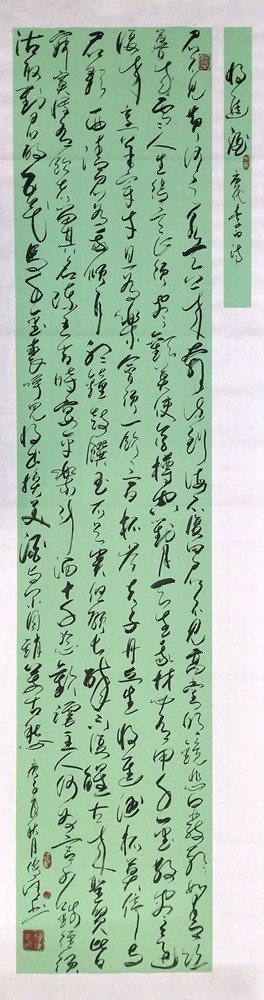 將進酒
唐代李白詩
君不見黃河之水天上來奔流到海不復回君不見高堂明鏡悲白髮朝如青絲
暮成雪人生得意須盡歡莫使金樽空對月天生我材必有用千金散盡還
復來烹羊宰牛且為樂會須一飲三百杯岑夫子丹丘生將進酒杯莫停與
君歌一曲請君為我傾耳聽鐘鼓饌玉不足貴但願長醉不復醒古來聖賢皆
寂寞惟有飲者留其名陳王昔時宴平樂斗酒十千恣歡謔主人何為言少錢徑須
沽取對君酌五花馬千金裘呼兒將出換美酒與爾同銷萬古愁 庚子